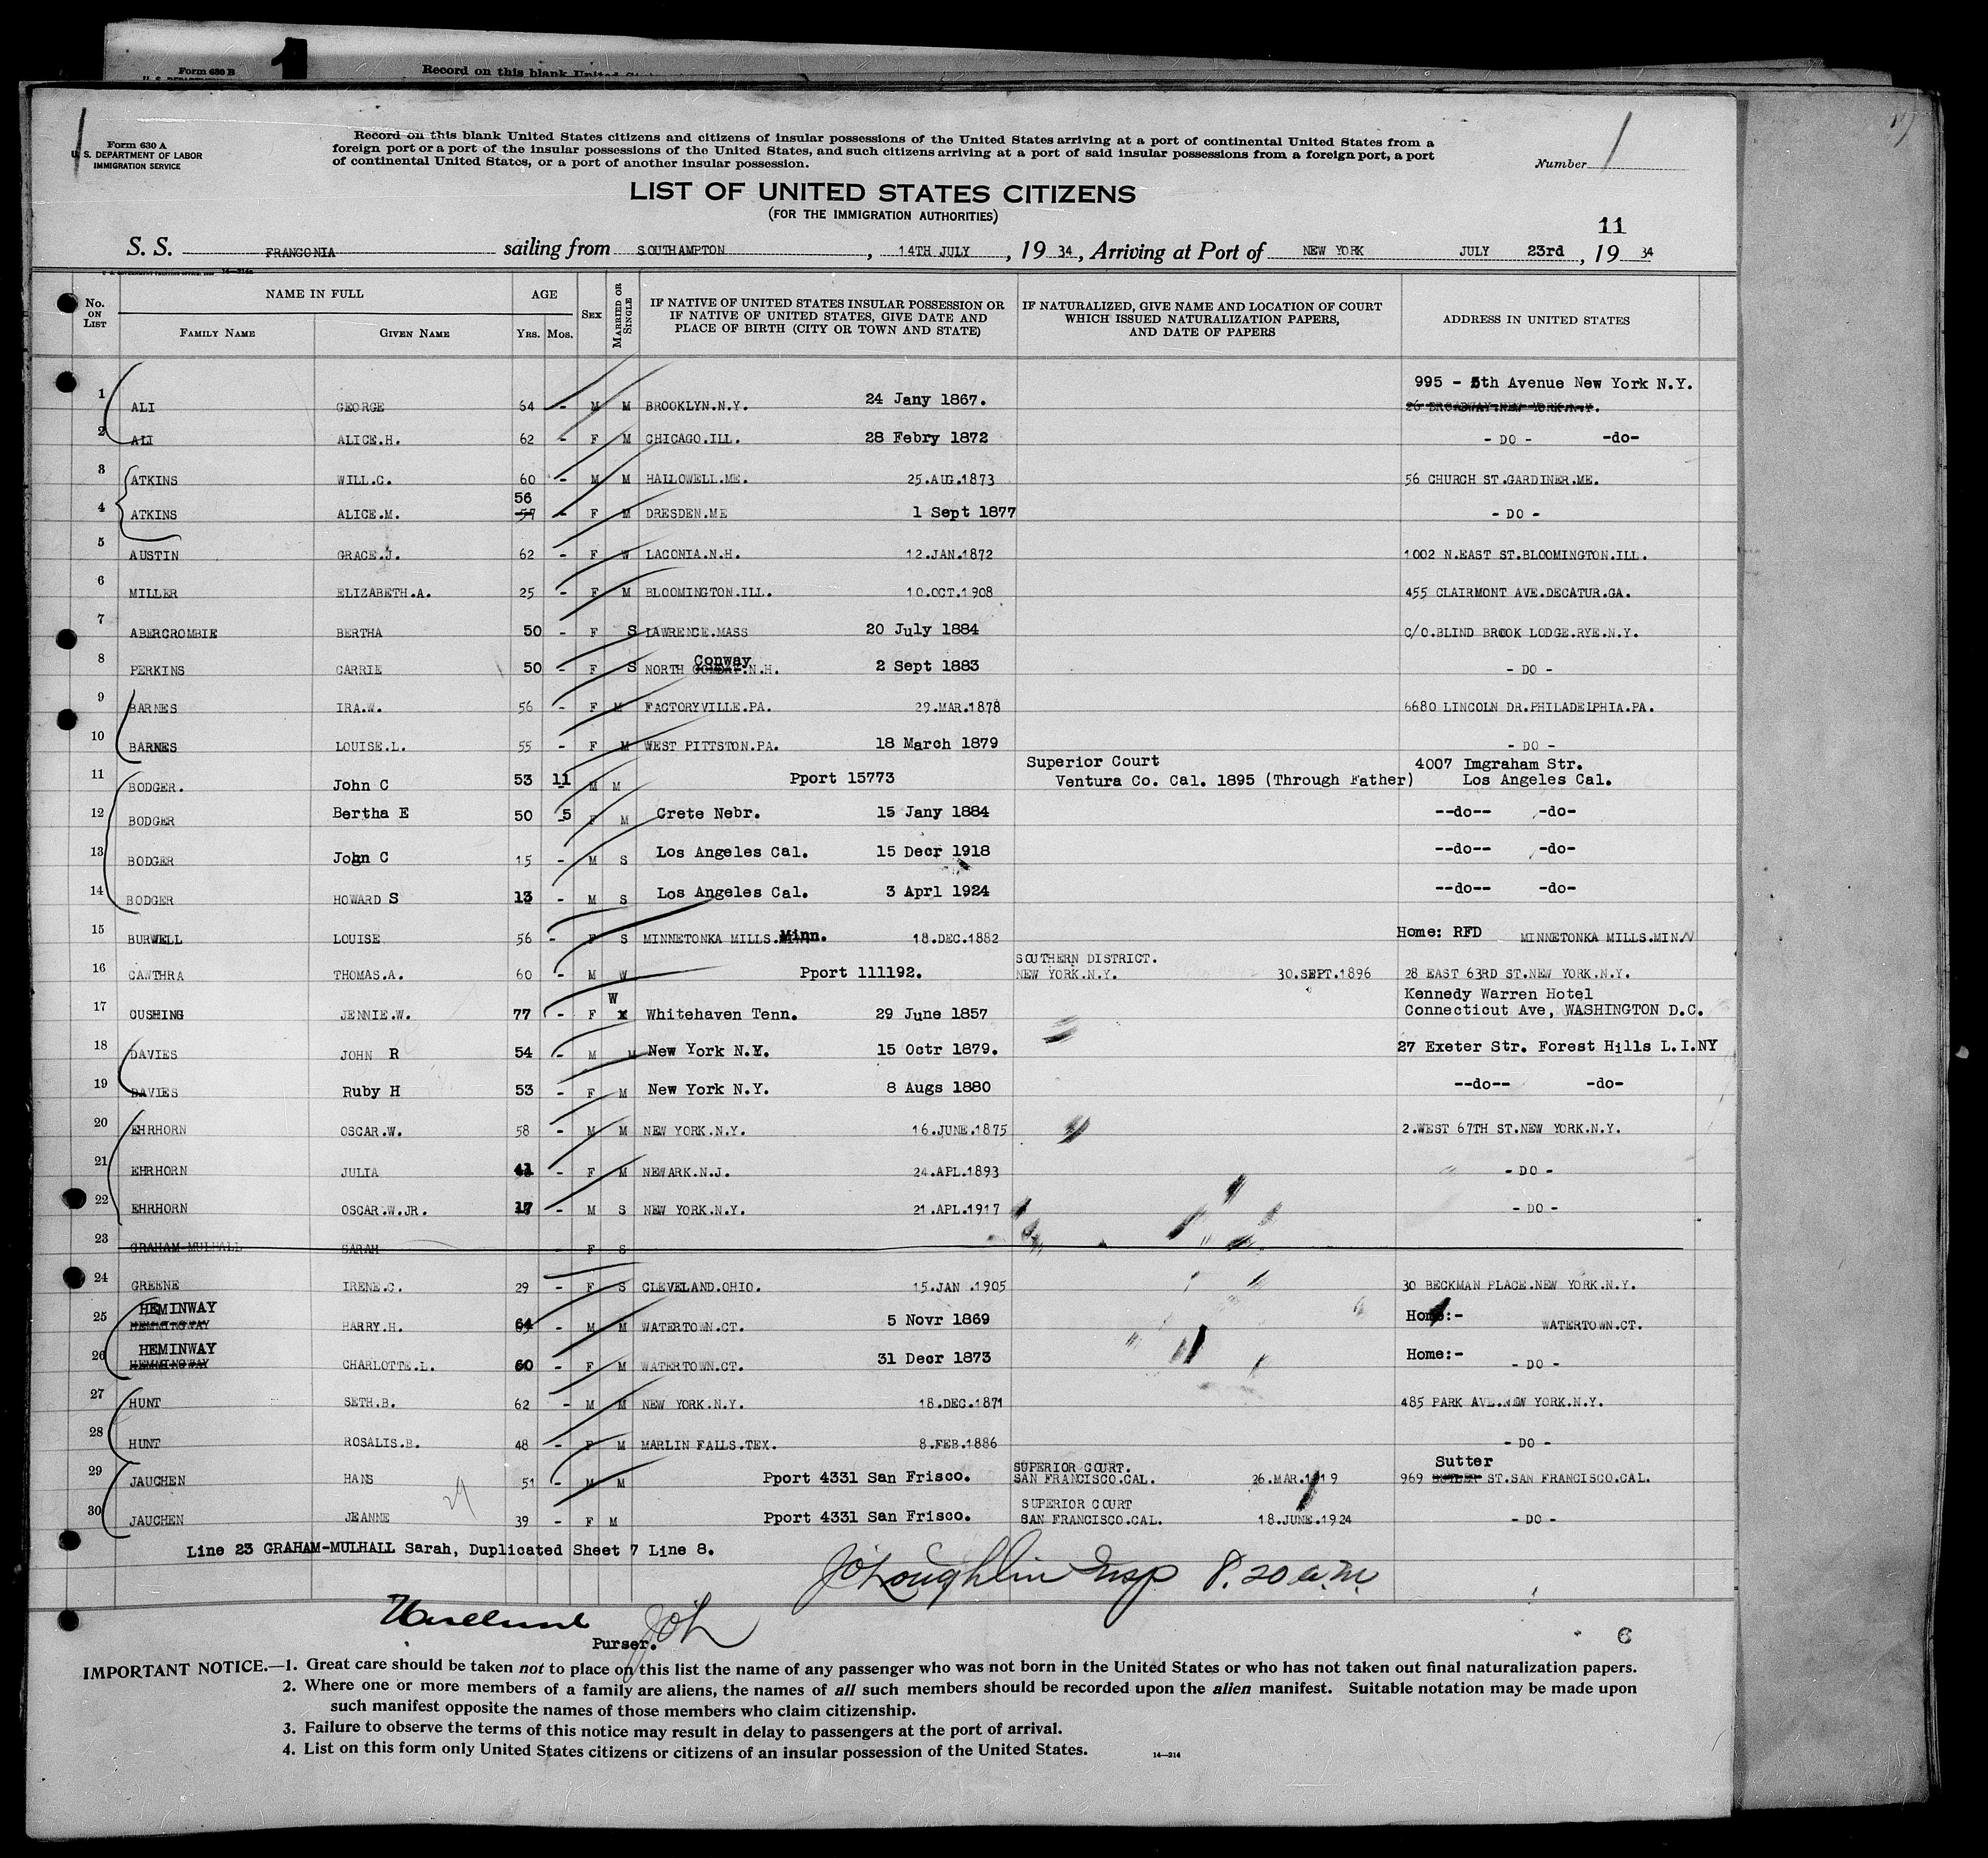 Form 630 B
Record on this blank United
1
Form 630 A
U. S. DEPARTMENT OF LABOR
IMMIGRATION SERVICE
Record on this blank United States citizens and citizens of insular possessions of the United States arriving at a port of continental United States from a
foreign port or a port of the insular possessions of the United States, and such citizens arriving at a port of said insular possessions from a foreign port, a port
of continental United States, or a port of another insular possession.
Number 1
LIST OF UNITED STATES CITIZENS
(FOR THE IMMIGRATION AUTHORITIES)
11
S. S. FRANCONIA sailing from SOUTHAMPTON, 14TH JULY, 19 34, Arriving at Port of NEW YORK JULY 23rd, 19 34
No. ON LIST NAME IN FULL AGE SEX MARRIED OR SINGLE IF NATIVE OF UNITED STATES INSULAR POSSESSION OR IF NATIVE OF UNITED STATES, GIVE DATE AND PLACE OF BIRTH (CITY OR TOWN AND STATE) IF NATURALIZED, GIVE NAME AND LOCATION OF COURT WHICH ISSUED NATURALIZATION PAPERS, AND DATE OF PAPERS ADDRESS IN UNITED STATES
FAMILY NAME GIVEN NAME YRS. MOS.
995 - 5th Avenue New York N.Y.
1 ALI GEORGE 64 - M M BROOKLYN.N.Y. 24 Jany 1867. 26 BROADWAY.NEW YORK.N.Y.
2 ALI ALICE.H. 62 - F M CHICAGO.ILL. 28 Febry 1872 - DO - -do-
3 ATKINS WILL.C. 60 - M M HALLOWELL.ME. 25.AUG.1873 56 CHURCH ST.GARDINER.ME.
56
4 ATKINS ALICE.M. 57 - F M DRESDEN.ME 1 Sept 1877 - DO -
5 AUSTIN GRACE.J. 62 - F W LACONIA.N.H. 12.JAN.1872 1002 N.EAST ST.BLOOMINGTON.ILL.
6 MILLER ELIZABETH.A. 25 - F M BLOOMINGTON.ILL. 10.OCT.1908 455 CLAIRMONT AVE.DECATUR.GA.
7 ABERCROMBIE BERTHA 50 - F S LAWRENCE.MASS 20 July 1884 C/O.BLIND BROOK LODGE.RYE.N.Y.
Conway
8 PERKINS CARRIE 50 - F S NORTH N.H. 2 Sept 1883 - DO -
9 BARNES IRA.W. 56 - F M FACTORYVILLE.PA. 29.MAR.1878 6680 LINCOLN DR.PHILADELPHIA.PA.
10 BARNES LOUISE.L. 55 - F M WEST PITTSTON.PA. 18 March 1879 - DO -
Superior Court 4007 Imgraham Str.
11 BODGER. John C 53 11 M M Pport 15773 Ventura Co. Cal. 1895 (Through Father) Los Angeles Cal.
12 BODGER Bertha E 50 5 F M Crete Nebr. 15 Jany 1884 --do-- -do-
13 BODGER John C 15 - M S Los Angeles Cal. 15 Decr 1918 --do-- -do-
14 BODGER HOWARD S 13 - M S Los Angeles Cal. 3 Aprl 1924 --do-- -do-
15 BURWELL LOUISE 56 - F S MINNETONKA MILLS.Minn. 18.DEC.1882 Home: RFD MINNETONKA MILLS.MINN
SOUTHERN DISTRICT.
16 CAWTHRA THOMAS.A. 60 - M W Pport 111192. NEW YORK.N.Y. 30.SEPT.1896 28 EAST 63RD ST.NEW YORK.N.Y.
W Kennedy Warren Hotel
17 CUSHING JENNIE.W. 77 - F Whitehaven Tenn. 29 June 1857 Connecticut Ave, WASHINGTON D.C.
18 DAVIES JOHN R 54 - M M New York N.Y. 15 Octr 1879. 27 Exeter Str. Forest Hills L.I.NY
19 DAVIES Ruby H 53 - F M New York N.Y. 8 Augs 1880 --do-- -do-
20 EHRHORN OSCAR.W. 58 - M M NEW YORK.N.Y. 16.JUNE.1875 2.WEST 67TH ST.NEW YORK.N.Y.
21 EHRHORN JULIA 41 - F M NEWARK.N.J. 24.APL.1893 - DO -
22 EHRHORN OSCAR.W.JR. 17 - M S NEW YORK.N.Y. 21.APL.1917 - DO -
23 GRAHAM-MULHALL SARAH - F S
24 GREENE IRENE.C. 29 - F S CLEVELAND.OHIO. 15.JAN .1905 30 BECKMAN PLACE.NEW YORK.N.Y.
HEMINWAY
25 HEMMINGWAY HARRY.H. 64 - M M WATERTOWN.CT. 5 Novr 1869 Home:- WATERTOWN.CT.
HEMINWAY
26 HEMMINGWAY CHARLOTTE.L. 60 - F M WATERTOWN.CT. 31 Decr 1873 Home:- - DO -
27 HUNT SETH.B. 62 - M M NEW YORK.N.Y. 18.DEC.1871 485 PARK AVE.NEW YORK.N.Y.
28 HUNT ROSALIS.B. 48 - F M MARLIN FALLS.TEX. 8.FEB.1886 - DO -
SUPERIOR COURT. Sutter
29 JAUCHEN HANS 51 - M M Pport 4331 San Frisco. SAN FRANCISCO.CAL. 26.MAR.1919 969 ST.SAN FRANCISCO.CAL.
SUPERIOR COURT
30 JAUCHEN JEANNE 39 - F M Pport 4331 San Frisco. SAN FRANCISCO.CAL. 18.JUNE.1924 - DO -
29
Line 23 GRAHAM-MULHALL Sarah, Duplicated Sheet 7 Line 8.
JO'Loughlin Insp 8.20 a.m.
Purser. JOL
IMPORTANT NOTICE.—1. Great care should be taken not to place on this list the name of any passenger who was not born in the United States or who has not taken out final naturalization papers.
2. Where one or more members of a family are aliens, the names of all such members should be recorded upon the alien manifest. Suitable notation may be made upon
such manifest opposite the names of those members who claim citizenship.
3. Failure to observe the terms of this notice may result in delay to passengers at the port of arrival.
4. List on this form only United States citizens or citizens of an insular possession of the United States.
14—214